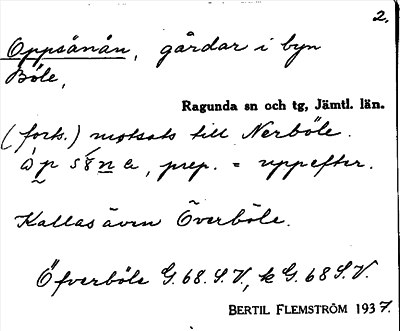 2.
Oppsånån, gårdar i byn
Böle,
Ragunda sn och tg, Jämtl. län.
(forts.) motsats till Nerböle.
, prep. = uppefter.
Kallas även Överböle.
Öfverböle G. 68. S. V., k G. 68 S. V.
BERTIL FLEMSTRÖM 1937.